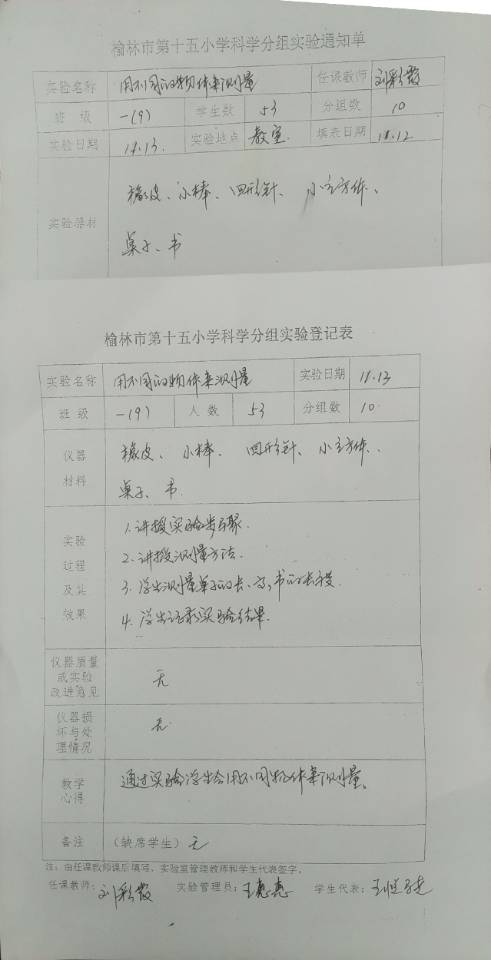 榆林市第十五小学科学分组实验通知单
实验名称 用不同的物体来测量 任课教师 刘彩霞
班 级 一(9) 学生数 53 分组数 10
实验日期 11.13. 实验地点 教室. 填表日期 11.12
实验器材 橡皮、小棒、回形针、小立方体、
桌子、书
榆林市第十五小学科学分组实验登记表
实验名称 用不同的物体来测量 实验日期 11.13
班 级 一(9) 人 数 53 分组数 10.
仪器 橡皮、小棒、回形针、小立方体、
材料 桌子、书.
实验 1.讲授实验步骤.
过程 2.讲授测量方法.
及其 3.学生测量桌子的长、高,书的长度.
效果 4.学生记录实验结果.
仪器质量
或实验 无
改进意见
仪器损
坏与处 无.
理情况
教学 通过实验学生会用不同物体来测量.
心得
备注 (缺席学生) 无
注:由任课教师课后填写,实验室管理教师和学生代表签字。
任课教师:刘彩霞 实验管理员:王惠惠 学生代表: